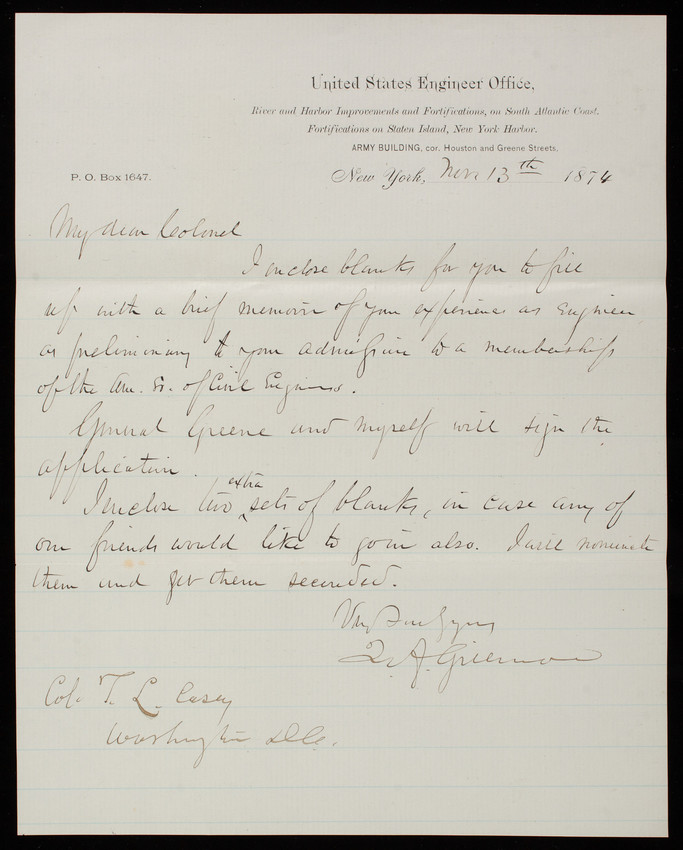 United States Engineer Office,
River and Harbor Improvements and Fortifications, on South Atlantic Coast.
Fortifications on Staten Island, New York Harbor.
ARMY BUILDING, cor. Houston and Greene Streets,
P. O. Box 1647.
New York, Nov. 13th 1874
My dear Colonel
I enclose blanks for you to fill
up with a brief memoir of your experience as Engineer
as preliminary to your admission to a membership
of the Am. So. of Civil Engineers.
General Greene and myself will sign the
application.
I enclose two extra sets of blanks, in case any of
our friends would like to go in also. I will nominate
them and get them seconded.
Very Sincly yours
Q. A. Gillmore
Col. T. L. Casey
Washington D.C.